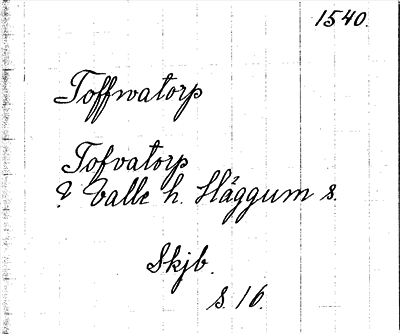 1540.
Toffwatorp
Tofvatorp
? Valle h. Häggum s.
Skjb.
s. 16.